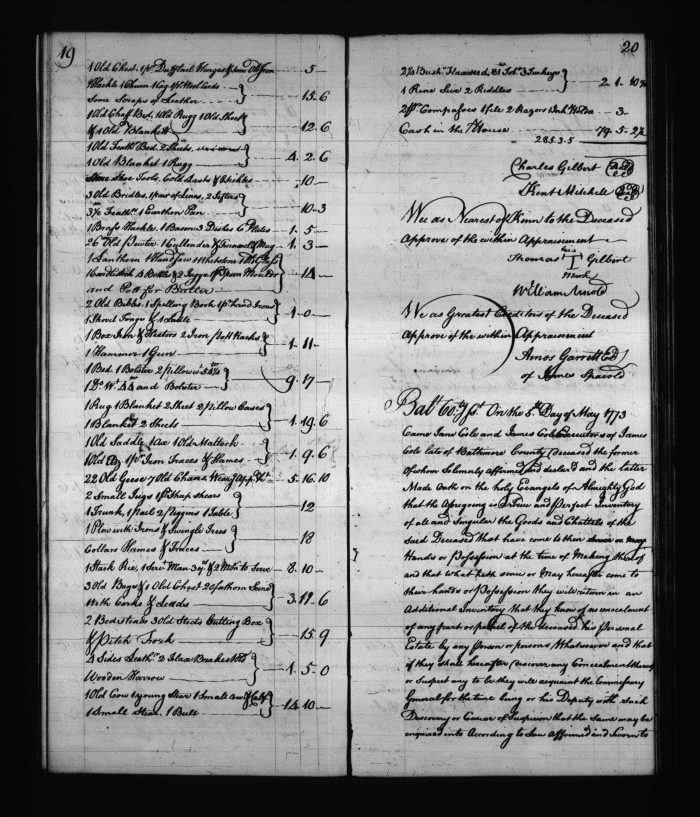 19
1 Old Chest 1 pr. Dufftail Hinges & some Old Iron — 5 —
1 Hackle 1 Churn 1 Keg & pr. Wool Cards
Some Scraps of Leather — 15.6
1 Old Chaff Bed, 1 Old Rugg 1 Old Sheet
& 1 Old Blankett — 12.6
1 Old Feathr. Bed. 2 Sheets
1 Old Blanket 1 Rugg — 4.2.6
Some Shoe Tools, Cobl. Lasts & Prickles — 10 —
3 Old Bridles, 1 pair of Lines, 2 Sifters
3 1/2 Feathrs. 1 Earthen Pan — 10.3
1 Brass Kettle, 1 Bason 3 Dishes 6 Plates — 1.5 —
26 Old Pewter 1 Cullender & Funnel & Mug — 1.3 —
1 Lanthorn 1 Hand Saw 1 Whetstone
1 Candlestick 4 Bottles & 2 Juggs 1 pr. Spoon Moulds — 14 —
and Pott for Butter
2 Old Bibles 1 Spelling Book 1 pr. hand Irons
1 Shovel Tongs & 1 Ladle — 1.0 —
1 Box Iron & Heaters 2 Iron Pott Racks
1 Hammer 1 Gun — 1.11 —
1 Bed. 1 Bolster 2 Pillows
1 Do. Wt. 44 and Bolster — 9.17 —
1 Rug 1 Blanket 2 Sheet 2 Pillow Cases
1 Blanket 2 Sheets — 1.19.6
1 Old Saddle 1 Ax 1 Old Mattock
1 Old 1 pr. Iron Traces & Hames — 1.9.6
22 Old Geese 7 Old Chairs Wearg. Appl. — 5.16.10
2 Small Juggs 1 pr. Sheep shears
1 Trunk, 1 pail 2 piggins 1 Table — 12
1 Plow with Irons & Swingle Trees
Collars Hames & Traces — 18
1 Stack Rie, 1 Servt. Man 3 yrs. & 2 Mos. to Serve — 8.10 —
3 Old Bags & 1 Old Chest 20 fathom Seine
With Corks & Leads — 3.17.6
2 Bedsteads 3 Old Stocks Cutting Box
& Pitch Fork — 15.9
4 Sides Leathr. 2 Flax Brakes
Wooden Harrow — 1.5.0
1 Old Cow 1 young Stear 1 Small Cow & Calf
1 Small Stear. 1 Bull — 14.10 —
20
2 1/2 Bushs. Flaxseed, 3 Turkeys
1 Rine Sive 2 Riddles — 2.1.10 3/4
2 pr. Compasses 1 file 2 Razors — 3 —
Cash in the House — 79.5.2 1/2
285.3.5
Charles Gilbert
Kent Mitchell
We as Nearest of Kinn to the Deceased
Approve of the within Appraisement
his
Thomas T Gilbert
Mark
William Arnold
We as Greatest Creditors of the Deceased
Approve of the within Appraisement
Amos Garrett
of James
Balt Coty Sst. On the 5th Day of May 1773
Came Jane Cole and James Cole Executors of James
Cole late of Baltimore County Deceased the former
of whom Solemnly affirmed and declared and the latter
Made Oath on the holy Evangels of Almighty God
that the Aforegoing is a True and Perfect Inventory
of all and Singular the Goods and Chattels of the
Said Deceased that have come to their
Hands or Possession at the time of Making thereof
and that what hath since or May hereafter come to
their hands or Possession they will return in an
Additional Inventory that they know of no concealment
of any part or parcel of the deceased his Personal
Estate by any person or persons Whatsoever and that
if they shall hereafter discover any Concealment thereof
or Suspect any to be they will acquaint the Commissary
General for the time being or his Deputy with such
Discovery or Cause of Suspicion that the Same may be
enquired into According to Law affirmed and Sworn to